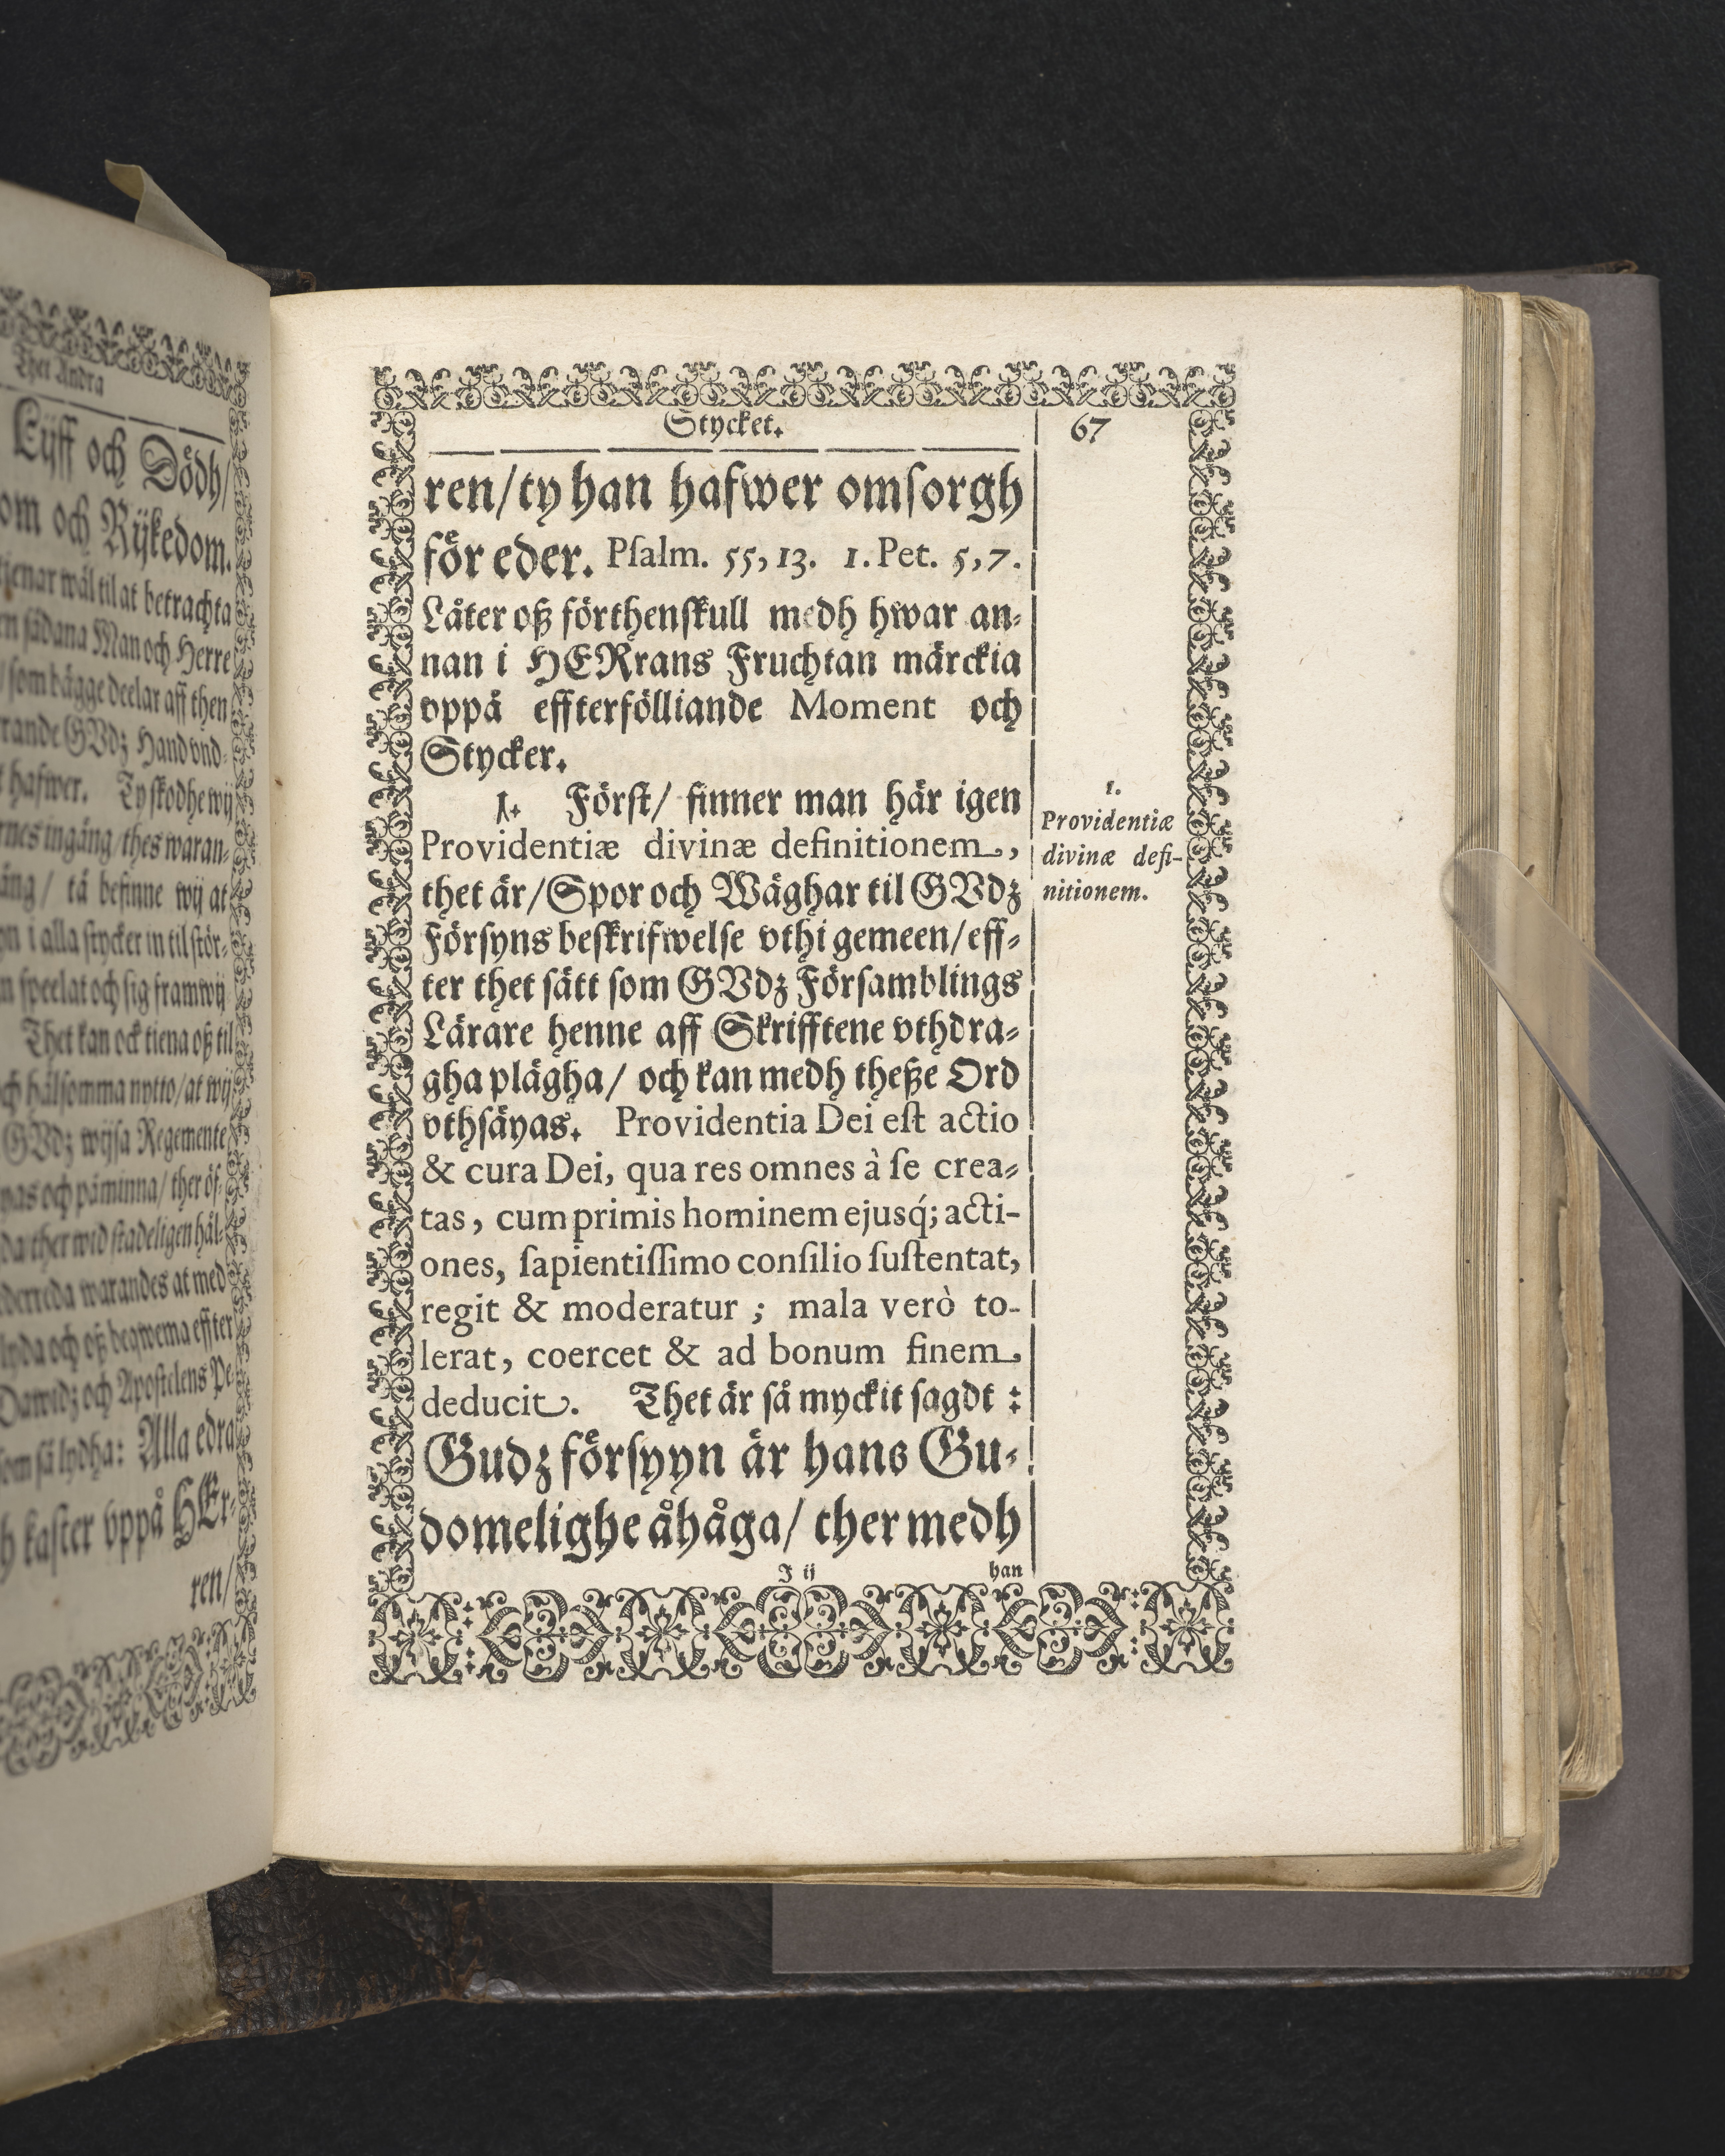 Thet Andra
Lijff och Dödh/
om och Rijkedom.
tienar wäl til at betrachta
sådana Man och Herre
/ som bägge deelar aff then
rande GVdz Hand vnd-
hafwer. Ty skodhe wij
rnes ingång/ thes waran-
ång/ tå befinne wij at
i alla stycker in til stör-
speelat och sig framwij
Thet kan ock tiena oß til
och hälsomma nytto/ at wij
GVdz wijsa Regemente
as och påminna/ ther öf-
da ther wid stadeligen hål-
derreda warandes at med
lyda och oß beqwema effter
Dawidz och Apostelens Pe-
som så lydha: Alla edra
h kaster vppå HEr-
ren/
Stycket.
67
ren/ ty han hafwer omſorgh
för eder. Pſalm. 55, 13. 1. Pet. 5, 7.
Låter oß förthenſkull medh hwar an-
nan i HERrans Fruchtan märckia
vppå effterfölliande Moment och
Stycker.
1. Förſt/ finner man här igen
Providentiæ divinæ definitionem,
thet är/ Spor och Wäghar til GVdz
Förſyns beſkrifwelſe vthi gemeen/ eff-
ter thet ſätt ſom GVdz Förſamblings
Lärare henne aff Skrifftene vthdra-
gha plägha/ och kan medh theße Ord
vthſäyas. Providentia Dei eſt actio
& cura Dei, qua res omnes à ſe crea-
tas, cum primis hominem ejusq́; acti-
ones, ſapientiſſimo conſilio ſuſtentat,
regit & moderatur ; mala verò to-
lerat, coercet & ad bonum finem
deducit. Thet är ſå myckit ſagdt :
Gudz förſyyn är hans Gu-
domelighe åhåga/ ther medh
J ij
han
1.
Providentiæ
divinæ defi-
nitionem.